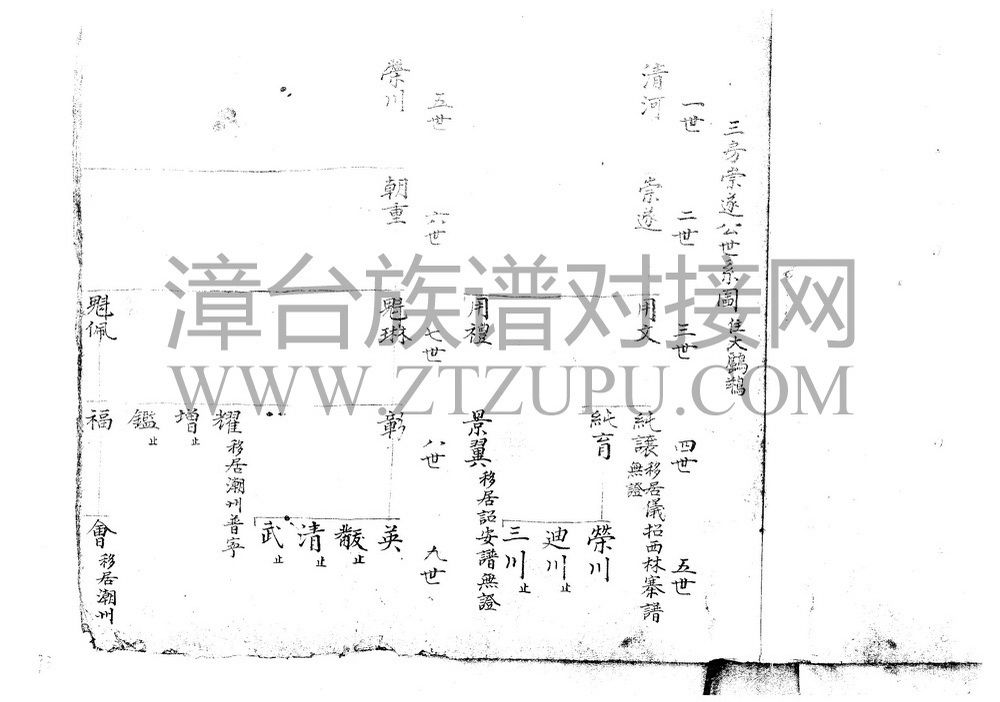 三房崇遂公世系圖 住大鷗鵲
一世 二世 三世 四世 五世
清河 崇遂 用文 純讓 移居儀招西林寨譜無證
純育 榮川
迪川 止
三川 止
用禮 景翼 移居詔安譜無證
五世 六世 七世 八世 九世
榮川 朝重 魁琳 彰 英
黻 止
清 止
武 止
耀 移居潮州普寧
增 止
鑑 止
魁佩 福 會 移居潮州
漳台族谱对接网
WWW.ZTZUPU.COM